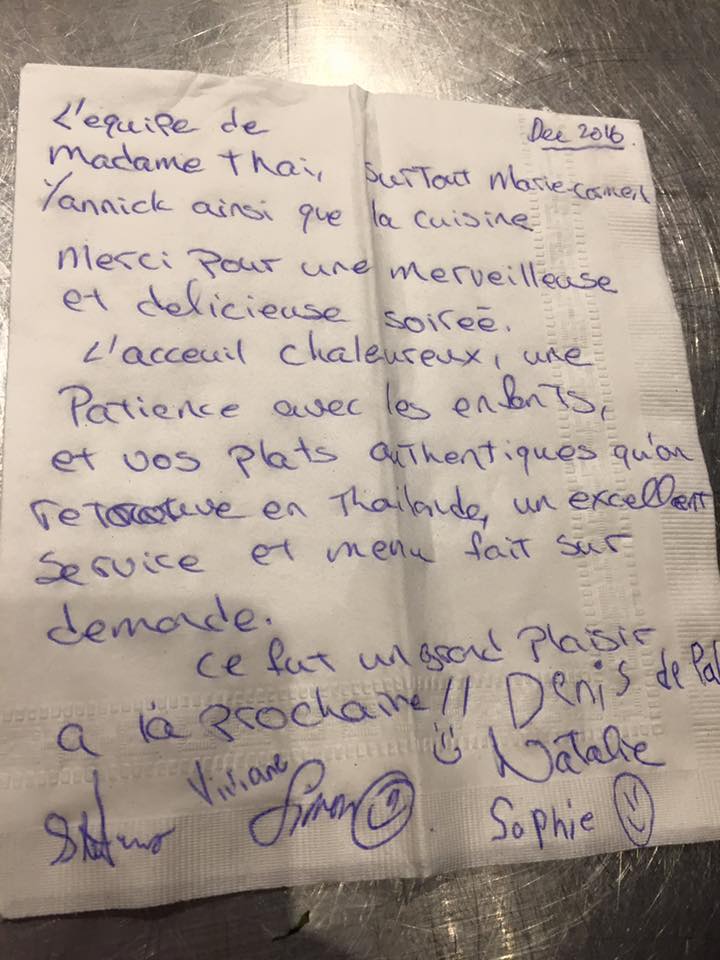 Dec 2016
L'équipe de
madame thai, surtout Marie-
Yannick ainsi que la cuisine
merci pour une merveilleuse
et delicieuse soireé.
L'acceuil chaleureux, une
Patience avec les enfants,
et vos plats authentiques qu'on
retrouve en Thailande, un excellent
service et menu fait sur
demande.
Ce fut un grand plaisir
a la prochaine!! Denis de
Natalie
Viviane
Simon
Sophie